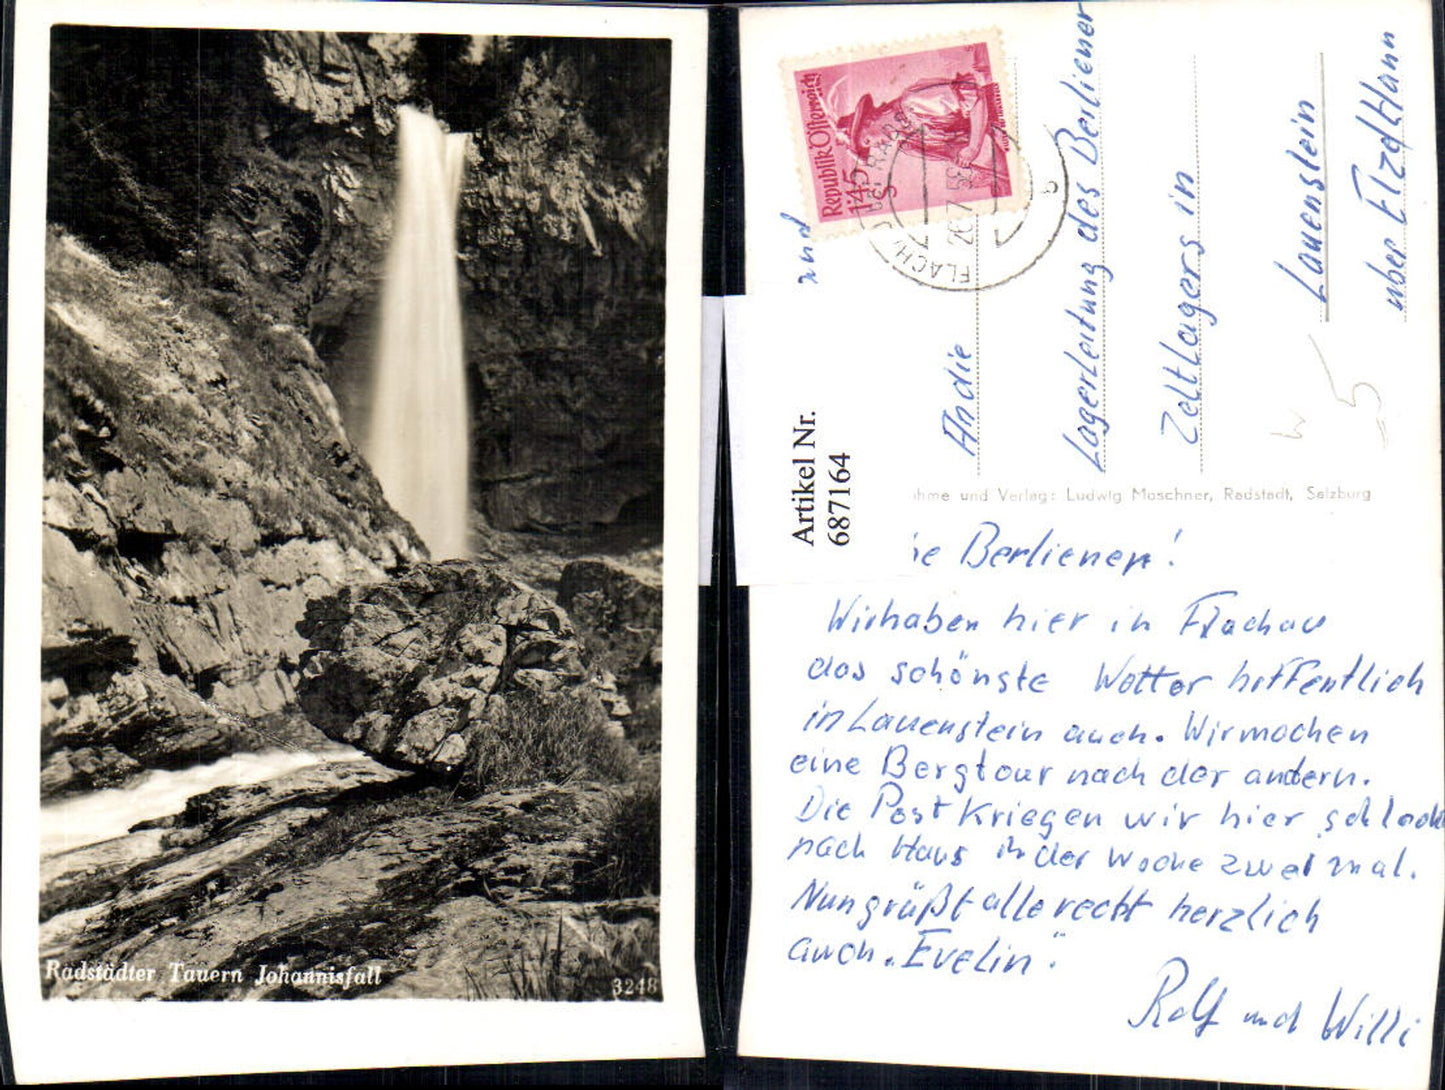 Radstädter Tauern Johannisfall
3248
Republik Österreich
1'45 S
FLACHAU
26.7.53
Artikel Nr.
687164
und
An die
Lagerleitung des Berliener
Zeltlagers in
Lauenstein
über Elze/Hann
5
hme und Verlag: Ludwig Maschner, Radstadt, Salzburg
e Berlienen!
Wir haben hier in Flachau
das schönste Wetter hoffentlich
in Lauenstein auch. Wir machen
eine Bergtour nach der andern.
Die Post kriegen wir hier, schlecht
nach Haus in der Woche zwei mal.
Nun grüßt alle recht herzlich
auch „Evelin“.
Rolf und Willi